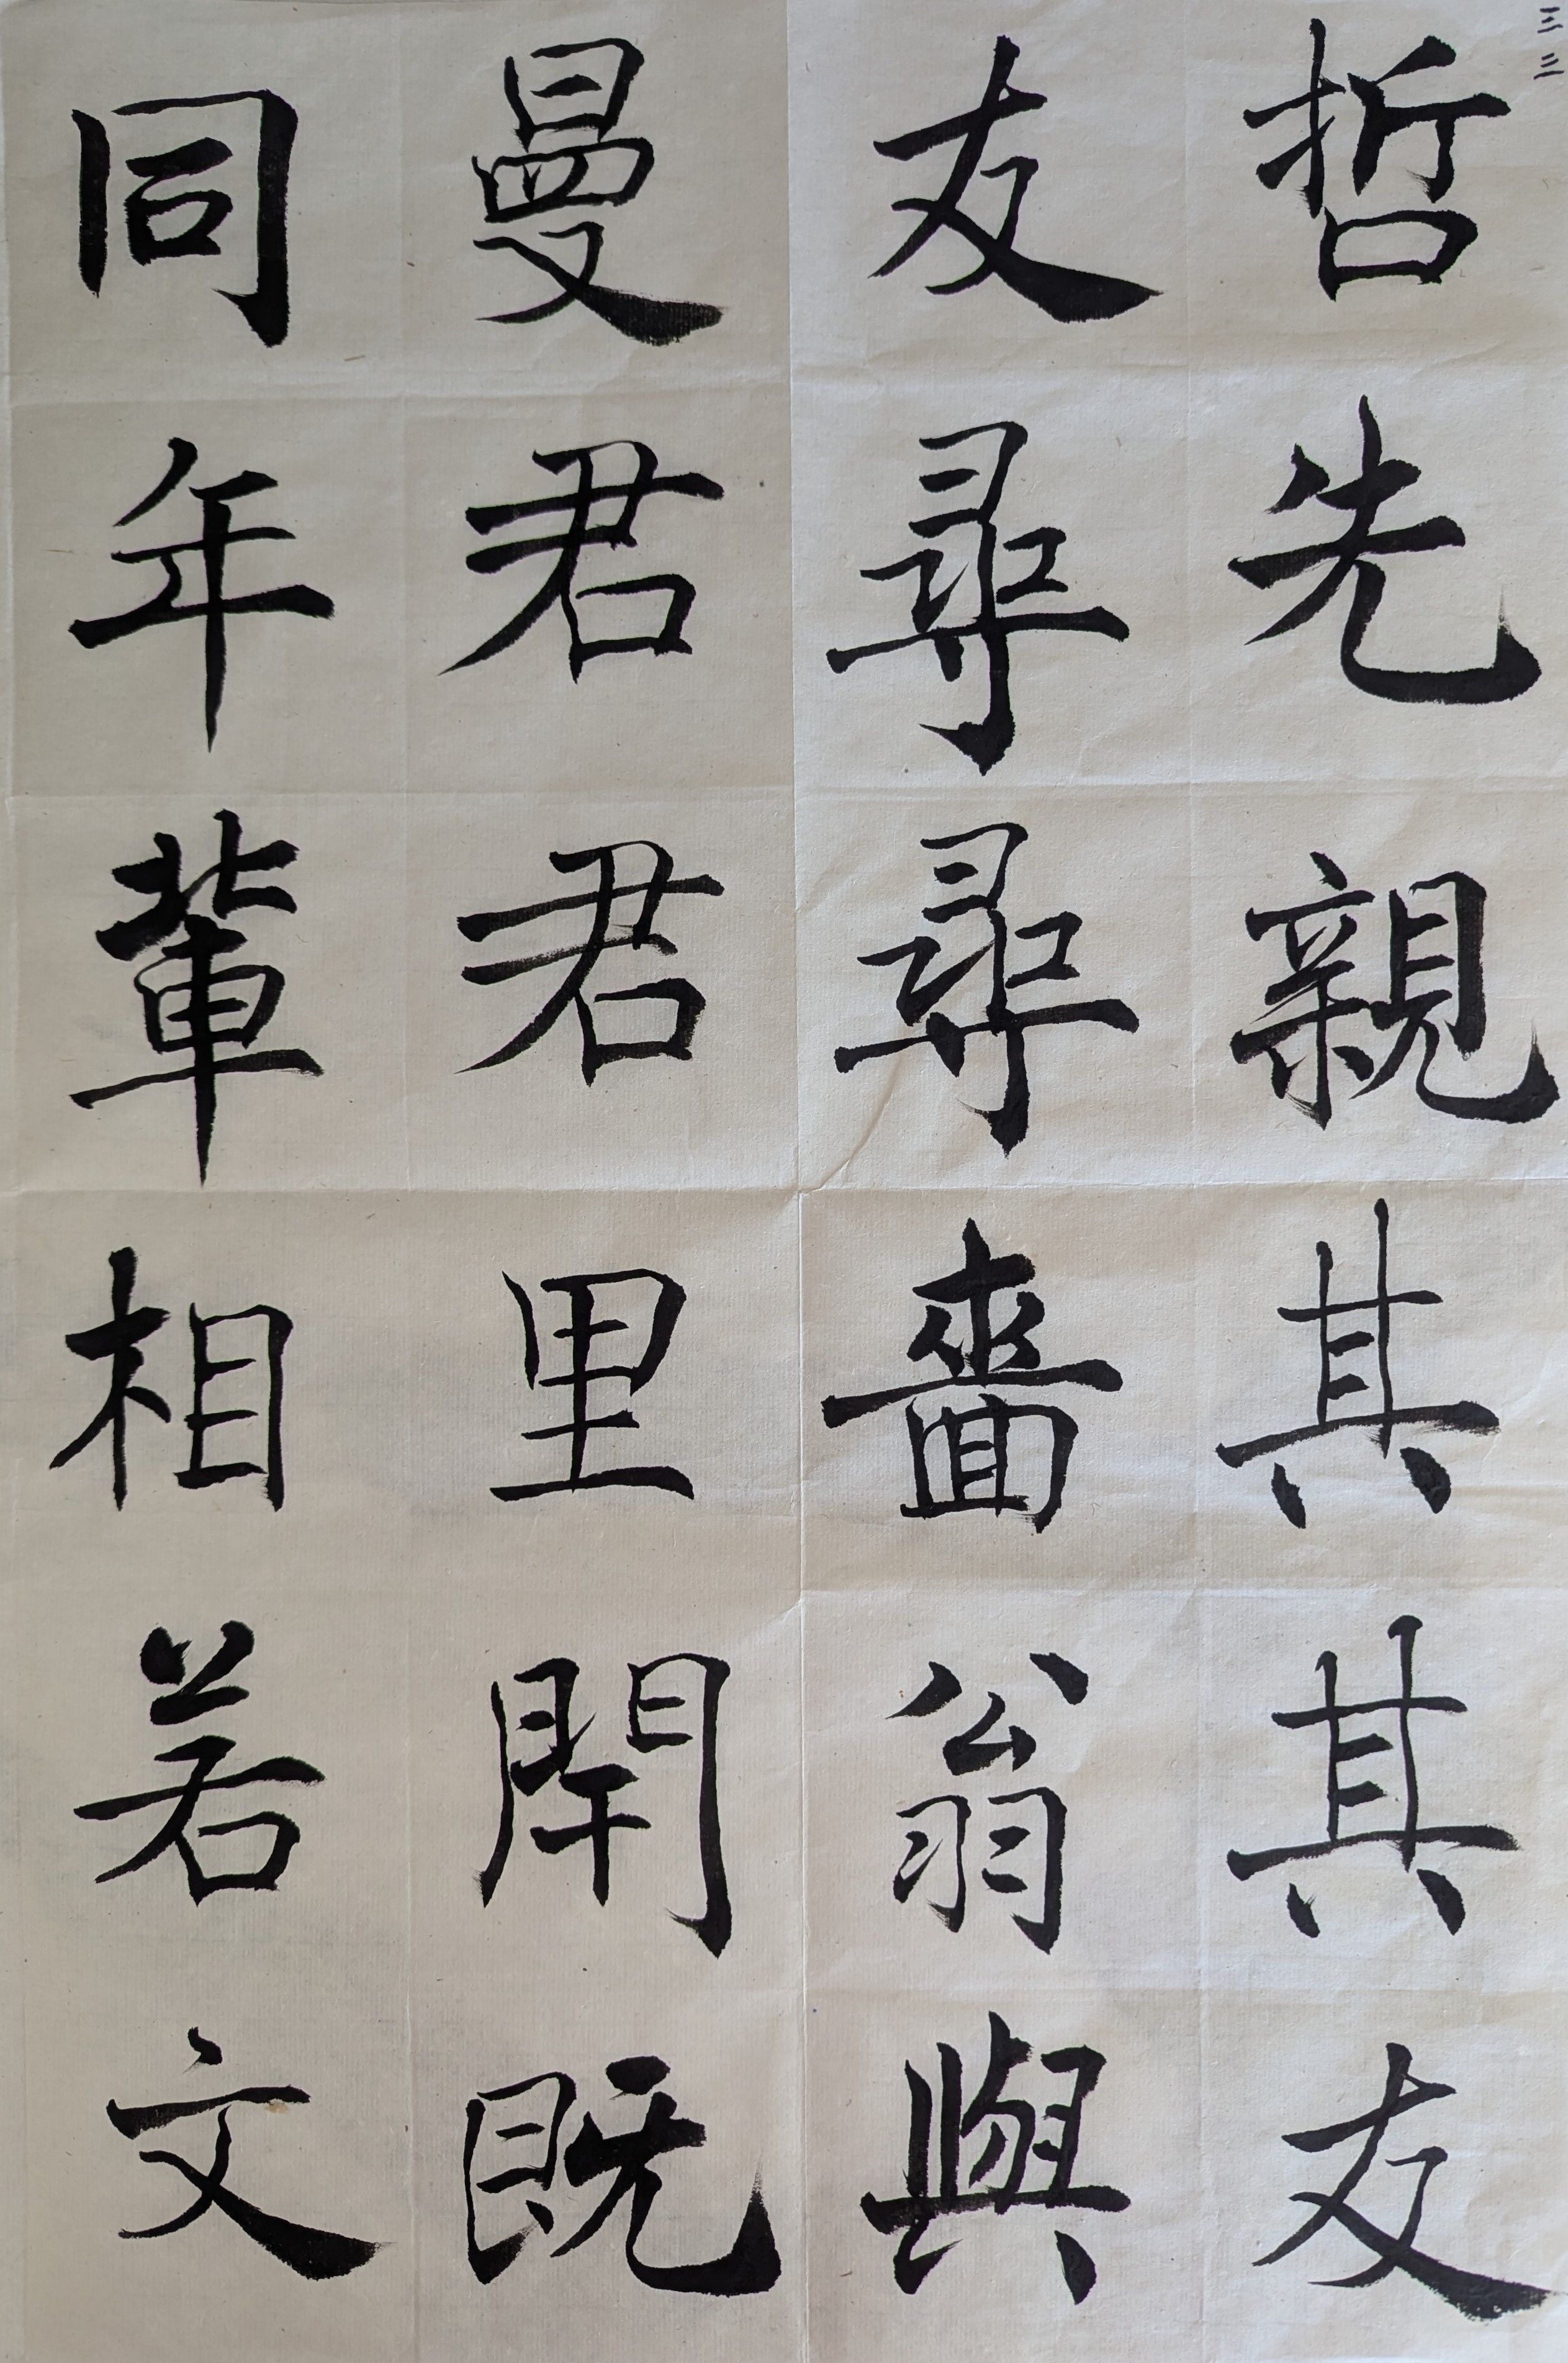 三三
哲先親其其友
友尋尋嗇翁與
曼君君里閈既
同年輩相若文